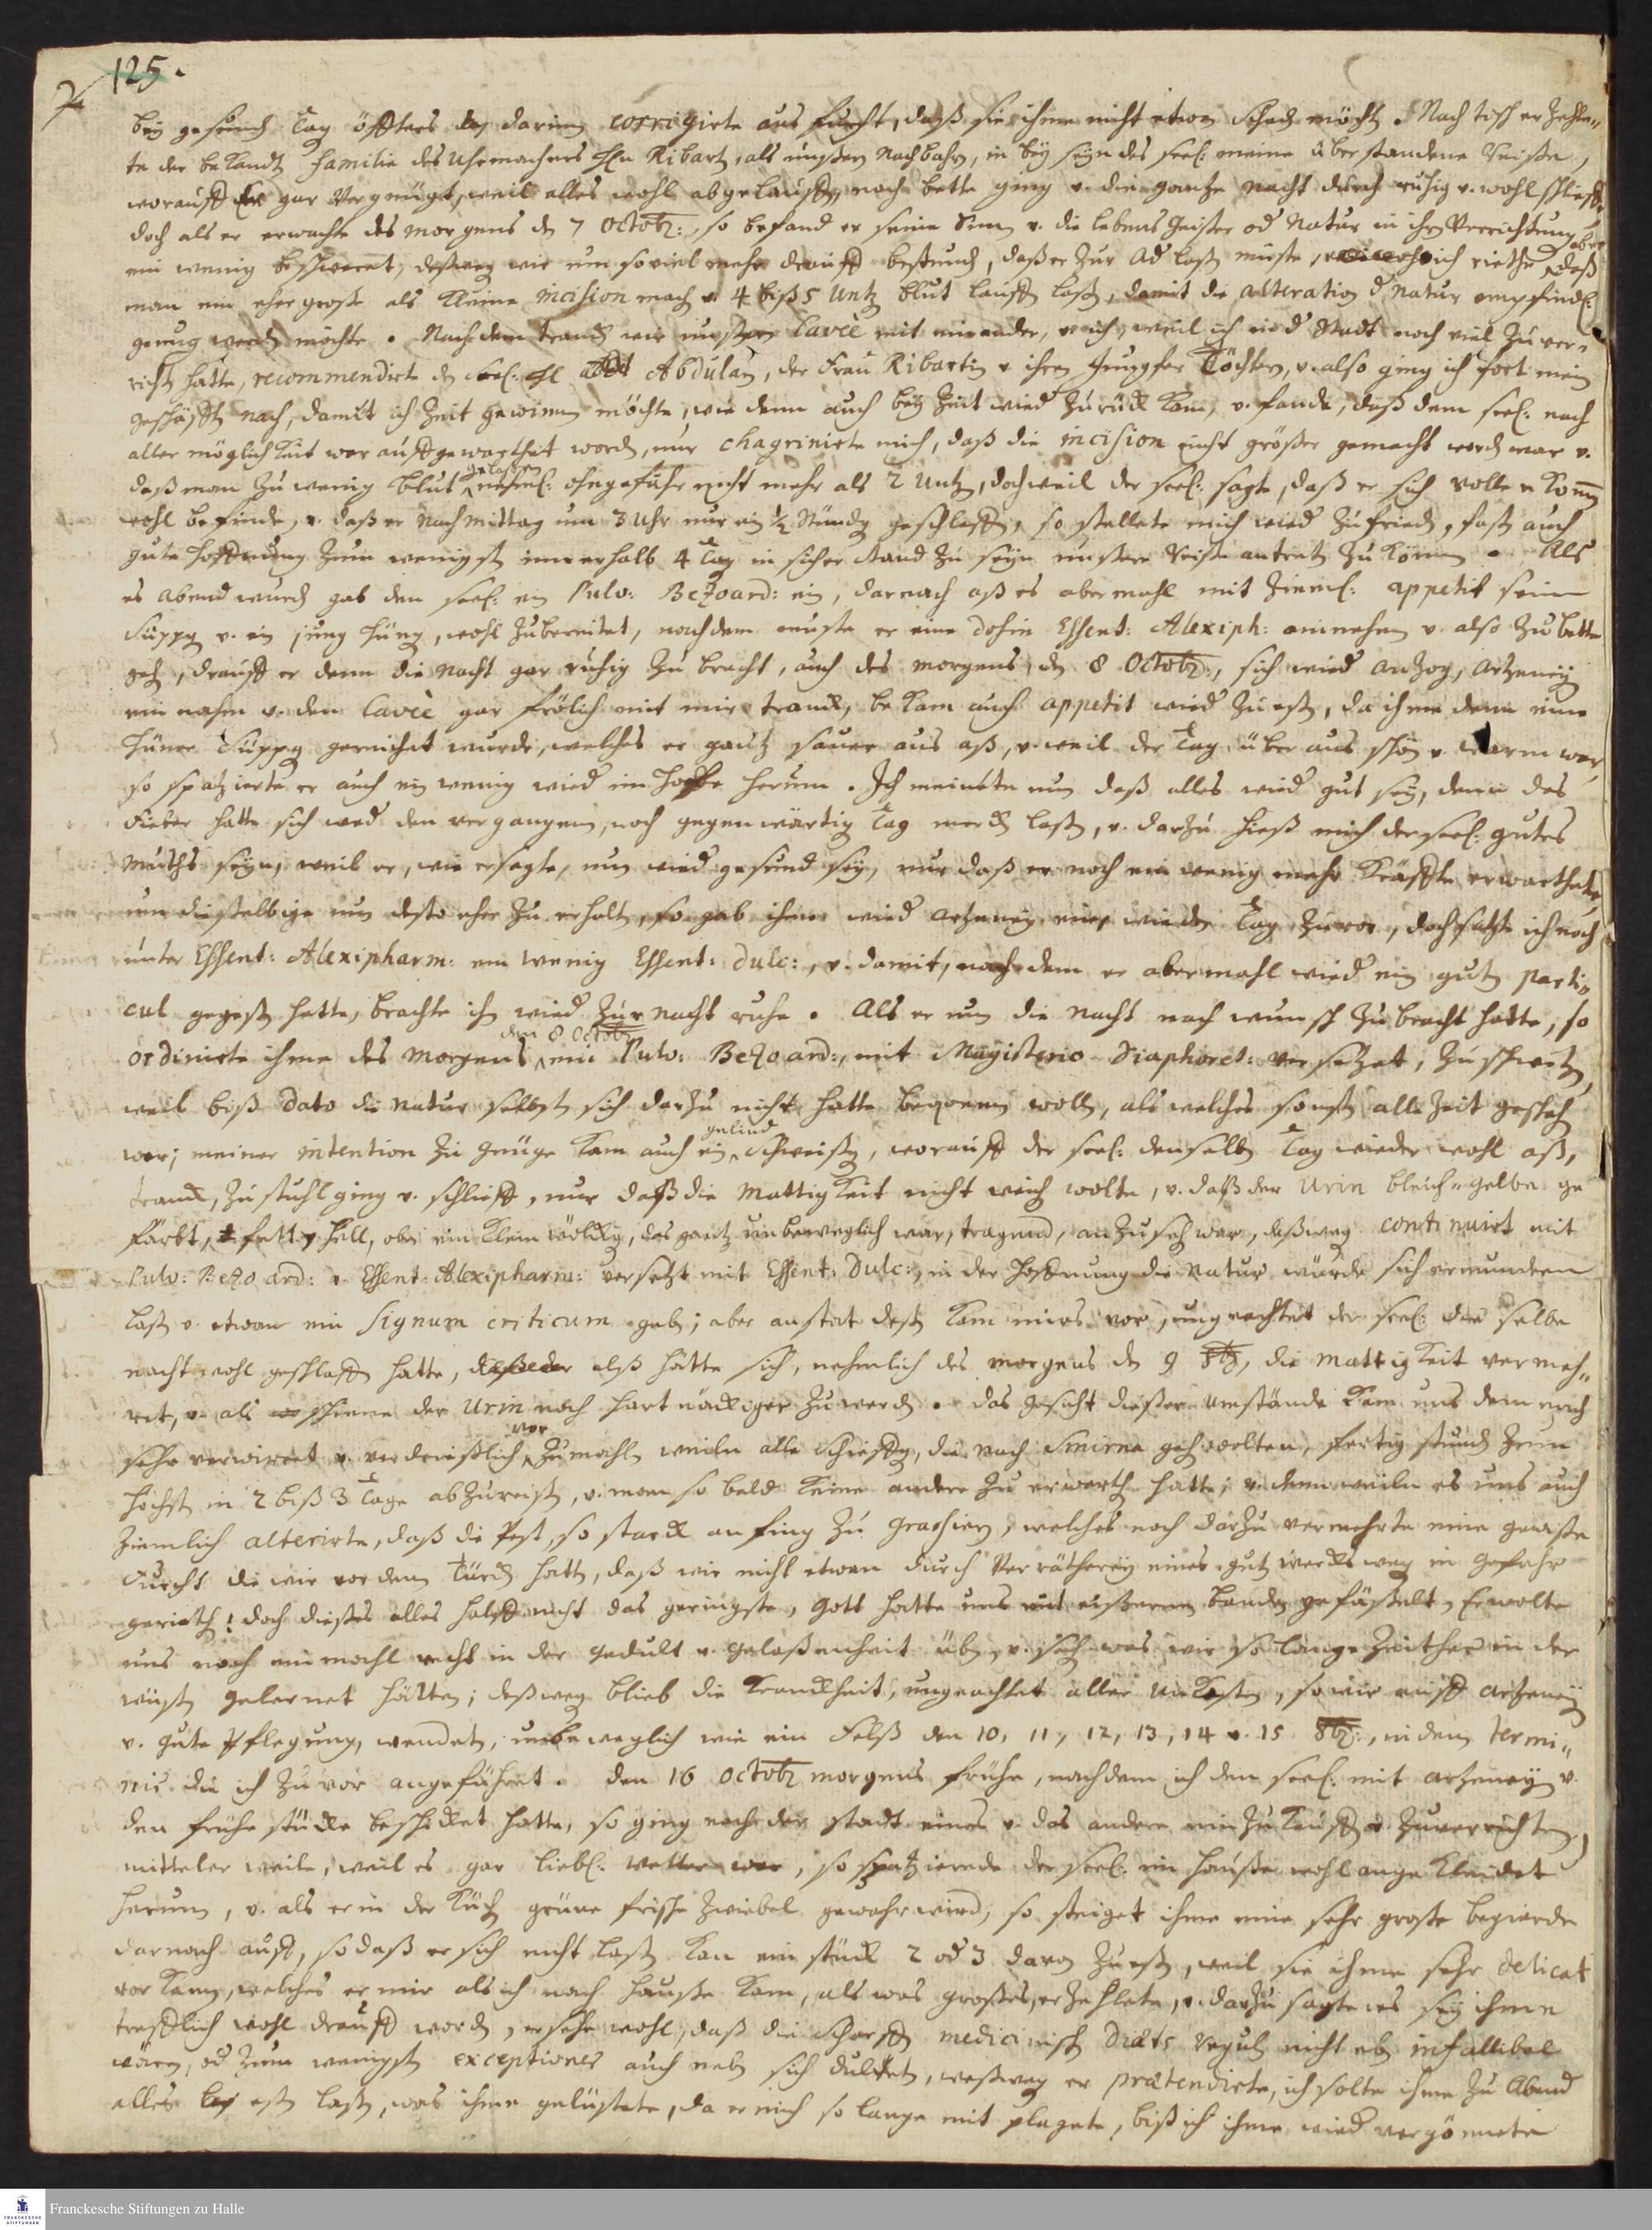 125.
2
bey gesunden Tag öffters den darinn corrigirte aus furcht, daß sie ihme nicht etwan schaden möchte. Nach tisch erzehle-
te der bekandten Familie des Uhrmachers Hn Ribart, als unßern Nachbahrn, in beysyn des seel: meine überstandene Reiße,
worauff Er gar vergnügt, weil alles wohl abgelauffen, nach bette ging v. die gantze nacht durch ruhig v. wohl schlieff,
doch als er erwachte des morgens d 7 Octobr:, so befand er seine Sinn v. die lebens Geister od Natur in ihrer Verrichtung aber
ein wenig beschweret, deßweg wir um soviel mehr drauff bestunden, daß er zur Ad laßen muste, ich riethe daß
man ein eher große als kleine incision mach v. 4 biß 5 Untz blut lauffen laßen, damit die alteration d Natur empfindl:
genug werden möchte. Nachdem trancken wir unßern Cavée mit einander, v. ich, weil ich in d Stadt noch viel zu ver-
richten hatte, recommendirte den seel: Hl Abdulam, der Frau Ribartin v. ihren Jungfer Töchtern, v. also ging ich fort mein
geschäfften nach, damit ich Zeit gewinnen möchte, wie denn auch bey Zeit wied zurück kam, v. fande, daß dem seel: nach
aller möglichkeit war auffgewarthet worden, nur chagrinirte mich, daß die incision nicht größer gemacht worden war v.
daß man zu wenig blut gelaßen nehml: ohngefähr nicht mehr als 2 Untz, doch weil der seel: sagte, daß er sich vollkomm
wohl befinde, v. daß er nachmittag um 3 Uhr nur ein ½ Stündgen geschlaffen, so stellete mich wied zufrieden, faßte auch
gute Hoffnung zum wenigsten innerhalb 4 Tagen in sicher stand zu seyn unßere Reiße antreten zu können. Als
es abend wurde gab dem seel: ein Pulv: Bezoard: ein, darnach aß er abermahl mit ziemml: appetit seine
Suppen v. ein jung Hüng, wohl zubereitet, nachdem muste er eine dosin Essent: Alexiph: einnehmen v. also zu bette
gehen, drauff er denn die Nacht gar ruhig zu bracht, auch des morgens, den 8 Octobr:, sich wied anzog, Artzeney
einnahm v. den Cavée gar frölich mit mir tranck, bekam auch appetit wied zu eßen, da ihme denn eine
Hüner Suppen gereichet wurde, welches er gantz sauer aus aß, v. weil der Tag über aus schön v. warm war,
so spatzierte er auch ein wenig wied im Hoffe herum. Ich meinete nun daß alles wied gut sey, denn das
Fieber hatte sich wed den vergangenen, noch gegenwärtigen Tag mercken laßen, v. darzu hieß mich der seel: gutes
muths seyn, weil er, wie er sagte, nun wied gesund sey, nur daß er noch ein wenig mehr Kräffte erwarthete,
um dießelbige nun desto eher zu erhalten, so gab ihme wied Artzeney ein, wie den Tag zuvor, doch setzte ich noch
unter Essent: Alexipharm: ein wenig Essent: dulc:, v. damit, nachdem er abermahl wied ein guten Parti-
cul gegeßen hatte, brachte ihn wied zur nacht ruhe. Als er nun die Nacht nach wunsch zubracht hatte, so
ordinirte ihme des Morgens den 8 Octobr ein Pulv: Bezoard:, mit Magisterio Diaphoret: versetzet, zu schwitzen,
weil biß dato die Natur selbsten sich darzu nicht hatte beqvemen wollen, als welches sonsten alle Zeit geschehen
war; meiner intention zu gnüge kam auch ein gelind Schweißgen, worauff der seel: denselben Tag wieder wohl aß,
tranck, zu stuhl ging v. schlieff, nur daß die Mattigkeit nicht weichen wolte, v. daß der Urin bleich-gelbe ge
färbt, fett, hell, oben ein klein wölckgen, das gantz unbeweglich war, tragend, anzusehen war, deßwegen continuirt mit
Pulv: Bezoard: v. Essent: Alexipharm: versetzt mit Essent: Dulc:, in der Hoffnung die Natur würde sich ermundern
laßen v. etwan ein Signum criticum geben; aber anstat deßen kam mirs vor, ungeachtet der seel: die selbe
nacht wohl geschlaffen hatte, alß hätte sich, nehmlich des morgens d 9 8br, die Mattigkeit vermeh-
ret, v. als schiene der Urin noch hartnäckiger zu werden. Das gesicht dießer Umstände kam uns dem nach
sehr verwirret v. verdrießlich vor, zumahl weiln alle Schiffe, die nach Smirna gehen wolten, fertig stunden zum
höchsten in 2 biß 3 Tage abzureißen, v. man so bald keine andere zu erwarthen hatte, v. denn weiln es uns auch
ziemlich alterirte, daß die Pest, so starck anfing zu grassiren, welches noch darzu vermehrte eine gewiße
Furcht die wir vor dem Türcken hatten, daß wir nicht etwan durch Verrätherey eines guten wercks wegen in gefahr
geriethen: doch dießes alles halff nicht das geringste, Gott hatte uns mit eißernen banden gefäßelt, Er wolte
uns noch einmahl recht in der gedult v. gelaßenheit üben, v. sehen was wir so lange Zeit her in der
wüsten gelernet hätten; deßwegen blieb die Kranckheit, ungeachtet aller Unkosten, so wir auff Artzeney
v. gute Pflegung, wendeten, unbeweglich wie ein Felß den 10, 11, 12, 13, 14 v. 15 8br:, in den Termi-
nis die ich zuvor angeführet. Den 16 Octobr morgens frühe, nachdem ich den seel: mit Artzeney v.
den frühe stücke beschicket hatte, so ging nach der stadt eines v. das andere einzukauffen v. zuverrichten,
mitteler weile, weil es gar liebl: Wetter war, so spatzierede der seel: im Hauße wohl angekleidet
herum, v. als er in der Küchen grüne frische Zwiebel gewahr wird, so steiget ihme eine sehr große begierde
darnach auff, so daß er sich nicht laßen kan ein stück 2 od 3 davon zu eßen, weil sie ihme sehr delicat
vorkamen, welches er mir als ich nach Hauße kam, als was großes, erzehlete, v. darzu sagte es sey ihme
trefflich wohl drauff worden, er sehe wohl, daß die scharffen medicinischen Diæts Reguln nicht eben infallibel
wären, od zum wenigsten exceptiones auch neben sich dulteten, weßwegen er prætendirte, ich solte ihme zu Abend
alles eßen laßen, was ihme gelüstete, da er mich so lange mit plagete, biß ich ihme wied vergönnete
Franckesche Stiftungen zu Halle